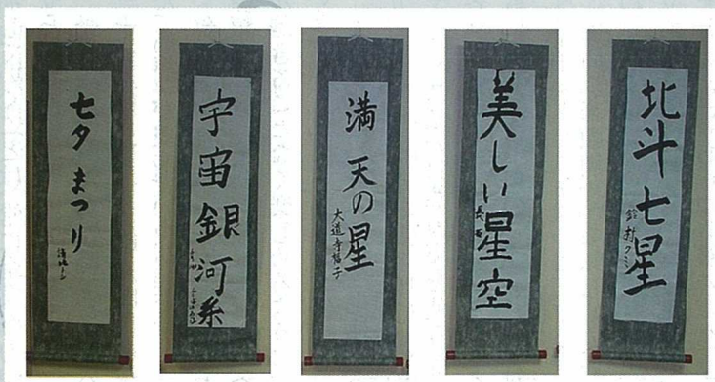 七夕まつり
宇宙銀河系
満天の星
大道寺
子
美しい星空
北斗七星
鈴村クミ